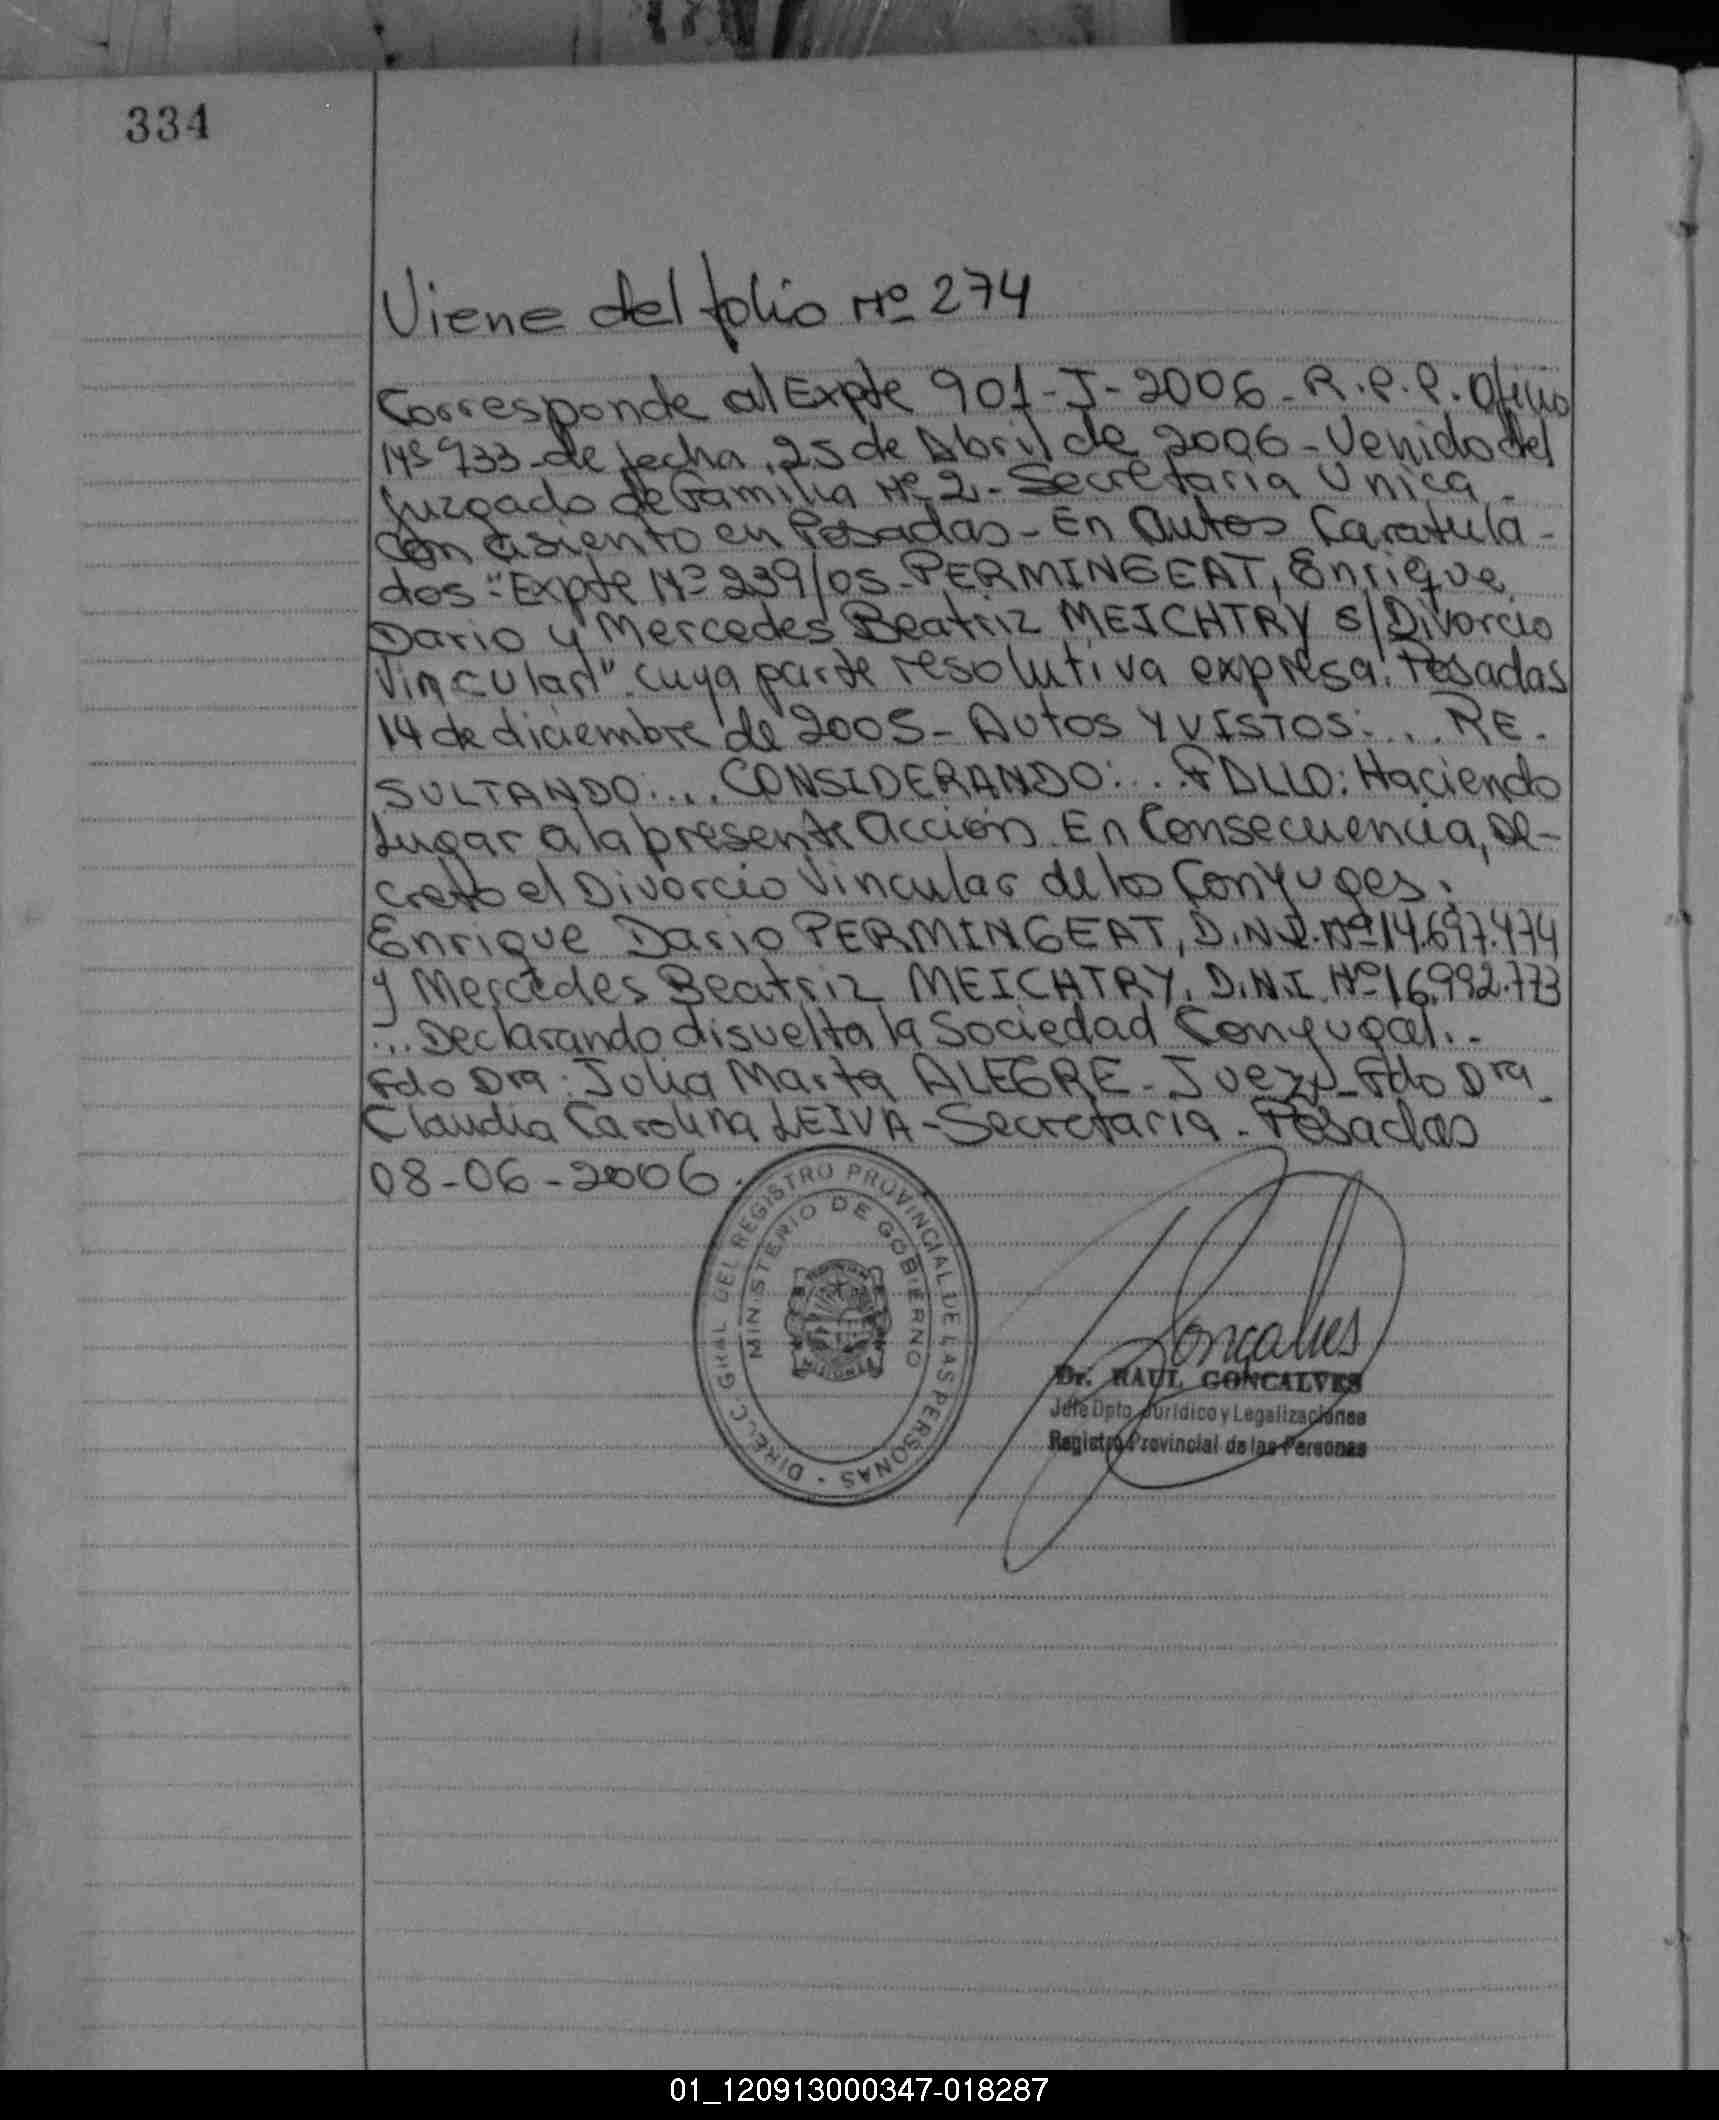 334
Viene del folio Nº 274
Corresponde al Expte 901-J-2006-R.P.P. Oficio
Nº 933-de fecha, 25 de Abril de 2006-Venido del
Juzgado de Familia Nº 2.-Secretaria Unica-
con asiento en Posadas-En Autos Caratula-
dos "Expte Nº 239/05-PERMINGEAT, Enrique
Dario y Mercedes Beatriz MEICHTRY s/Divorcio
Vincular". cuya parte resolutiva expresa: Posadas
14 de diciembre de 2005-Autos Y VISTOS:... RE-
SULTANDO:... CONSIDERANDO:... FALLO: Haciendo
Lugar a la presente acción. En Consecuencia, De-
creto el Divorcio Vincular de los Conyuges:
Enrique Dario PERMINGEAT, D.N.I. Nº 14.697.474
y Mercedes Beatriz MEICHTRY, D.N.I. Nº 16.992.773
... Declarando disuelta la Sociedad Conyugal..-
Fdo Dra: Julia Marta ALEGRE-Juez-Fdo Dra
Claudia Carolina LEIVA-Secretaria-Posadas
08-06-2006.
DIRECC. GRAL DEL REGISTRO PROVINCIAL DE LAS PERSONAS -
MINISTERIO DE GOBIERNO
MISIONES
Goncalves
Dr. RAUL GONCALVES
Jefe Dpto. Jurídico y Legalizaciones
Registro Provincial de las Personas
01_120913000347-018287